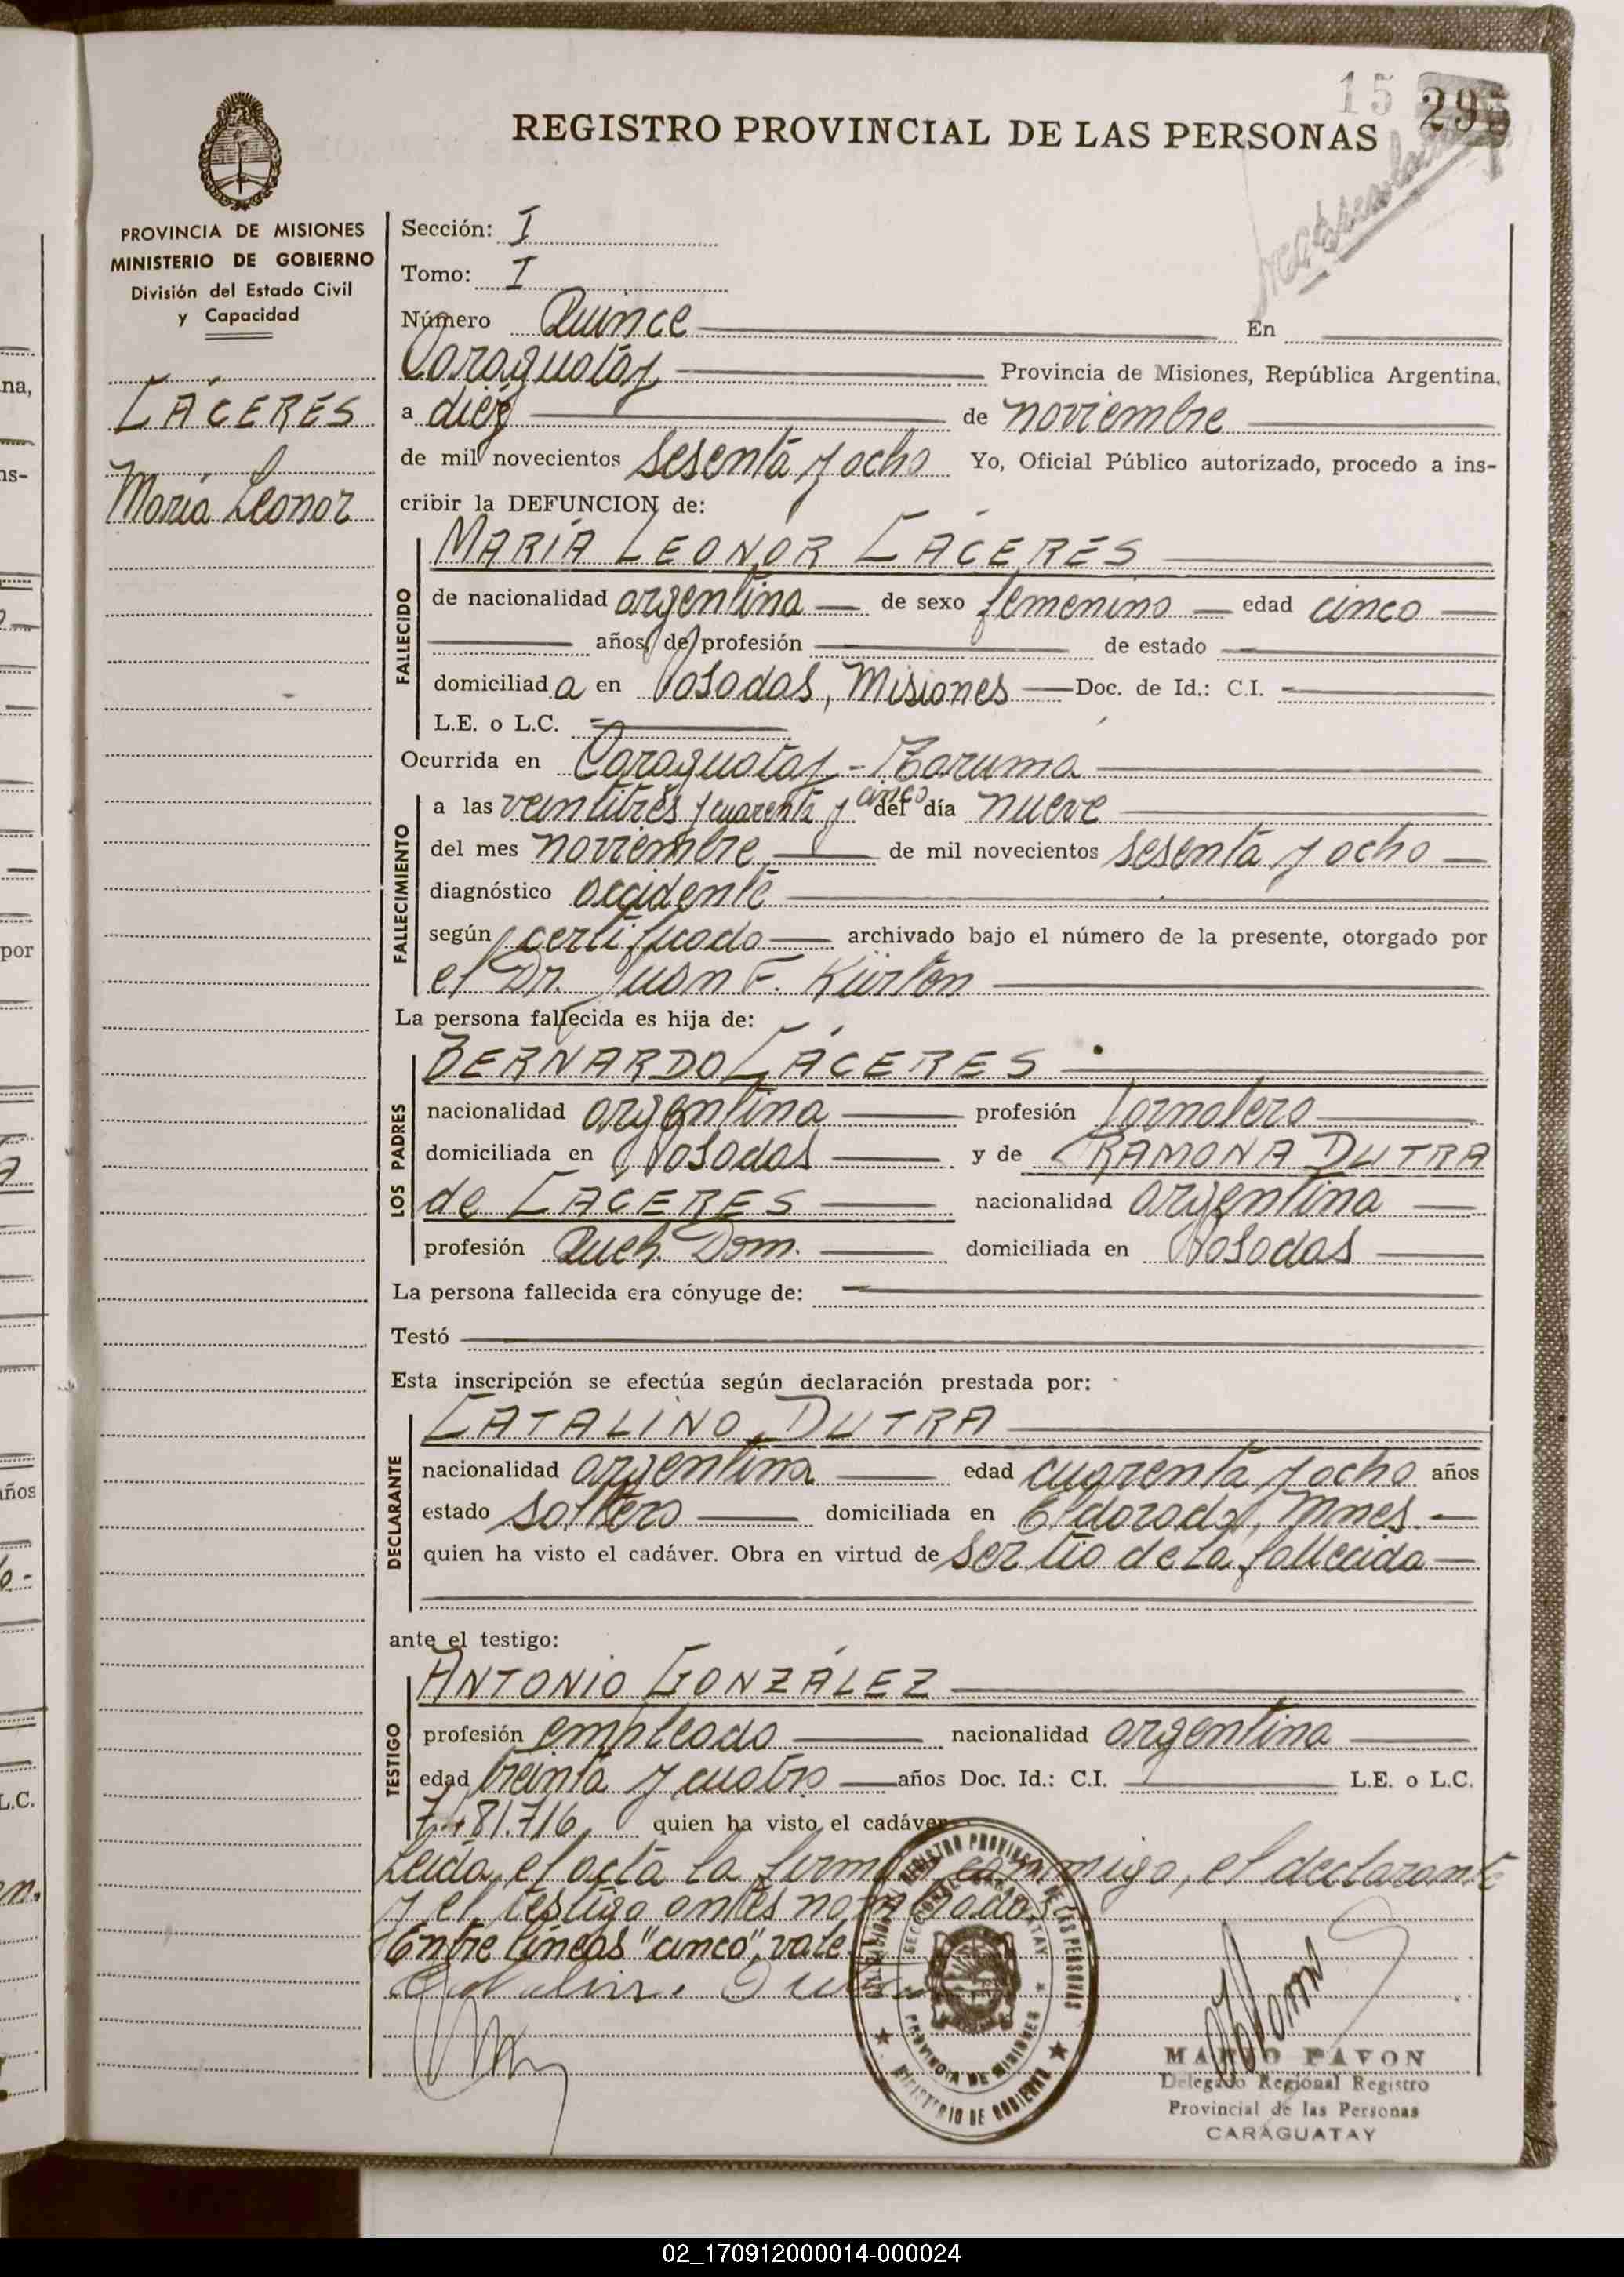 15 295
REGISTRO PROVINCIAL DE LAS PERSONAS
PROVINCIA DE MISIONES
MINISTERIO DE GOBIERNO
División del Estado Civil
y Capacidad
CÁCERES
María Leonor
Sección: I
Tomo: I
Número Quince En
Caraguatay Provincia de Misiones, República Argentina,
a diez de noviembre
de mil novecientos sesenta y ocho Yo, Oficial Público autorizado, procedo a ins-
cribir la DEFUNCION de:
FALLECIDO
MARÍA LEONOR CÁCERES
de nacionalidad argentina de sexo femenino edad cinco
años, de profesión de estado
domiciliada en Posadas, Misiones Doc. de Id.: C.I.
L.E. o L.C.
Ocurrida en Caraguatay - Taruma
FALLECIMIENTO
a las veintitrés y cuarenta y cinco del día nueve
del mes noviembre de mil novecientos sesenta y ocho
diagnóstico accidente
según certificado archivado bajo el número de la presente, otorgado por
el Dr. Juan F. Kürten
La persona fallecida es hija de:
LOS PADRES
BERNARDO CÁCERES
nacionalidad argentina profesión Jornalero
domiciliada en Posadas y de RAMONA DUTRA
de CÁCERES nacionalidad argentina
profesión Queh. Dom. domiciliada en Posadas
La persona fallecida era cónyuge de:
Testó
Esta inscripción se efectúa según declaración prestada por:
DECLARANTE
CATALINO DUTRA
nacionalidad argentina edad cuarenta y ocho años
estado soltero domiciliada en Eldorado, Mnes.
quien ha visto el cadáver. Obra en virtud de ser tío de la fallecida
ante el testigo:
TESTIGO
ANTONIO GONZÁLEZ
profesión empleado nacionalidad argentina
edad treinta y cuatro años Doc. Id.: C.I. L.E. o L.C.
quien ha visto el cadáver
Leída el acta la firman conmigo, el declarante
y el testigo antes nombrados
Entre líneas "cinco", vale
MARIO PAVON
Delegado Regional Registro
Provincial de las Personas
CARAGUATAY
REGISTRO PROVINCIAL DE LAS PERSONAS
PROVINCIA DE MISIONES
MINISTERIO DE GOBIERNO
na,
ns-
por
años
L.C.
02_170912000014-000024